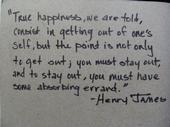 "True happiness, we are told,
consist in getting out of one's
self, but the point is not only
to get out; you must stay out,
and to stay out, you must have
some absorbing errand."
-Henry James